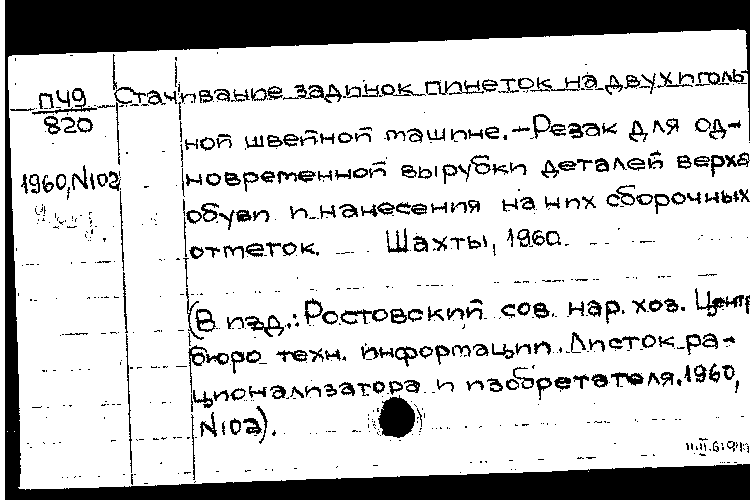 П49
820
1960, N102
Стачивание задинок пинеток на двухиголь
ной швейной машине. – Резак для од-
новременной вырубки деталей верха
обуви и нанесения на них сборочных
отметок. Шахты, 1960.
(В изд.: Ростовский сов. нар. хоз. Центр
бюро техн. информации. Листок ра-
ционализатора и изобретателя. 1960,
N102).